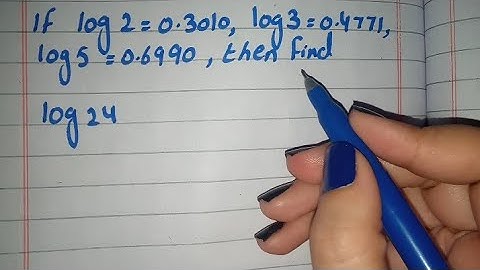 If log 2 = 0.3010, log 3 = 0.4771,
log 5 = 0.6990, then find
log 24